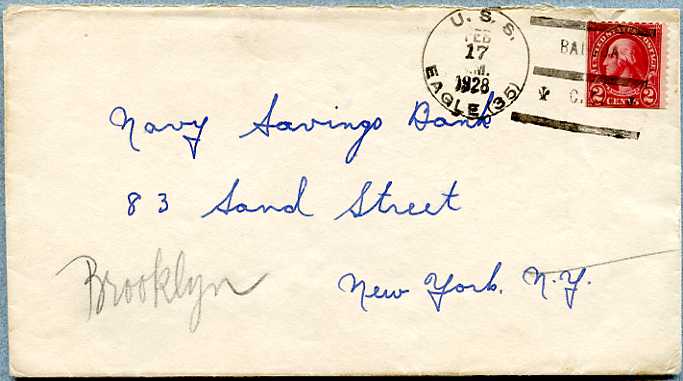 U. S. S.
FEB
17
M.
1928
EAGLE (35)
UNITED STATES POSTAGE
2 CENTS 2
Navy Savings Bank
83 Sand Street
Brooklyn
New York. N.Y.